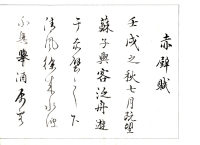 赤壁賦
壬戌之秋七月既望
蘇子與客泛舟遊
于赤壁之下
清風徐來水波
不興舉酒屬客